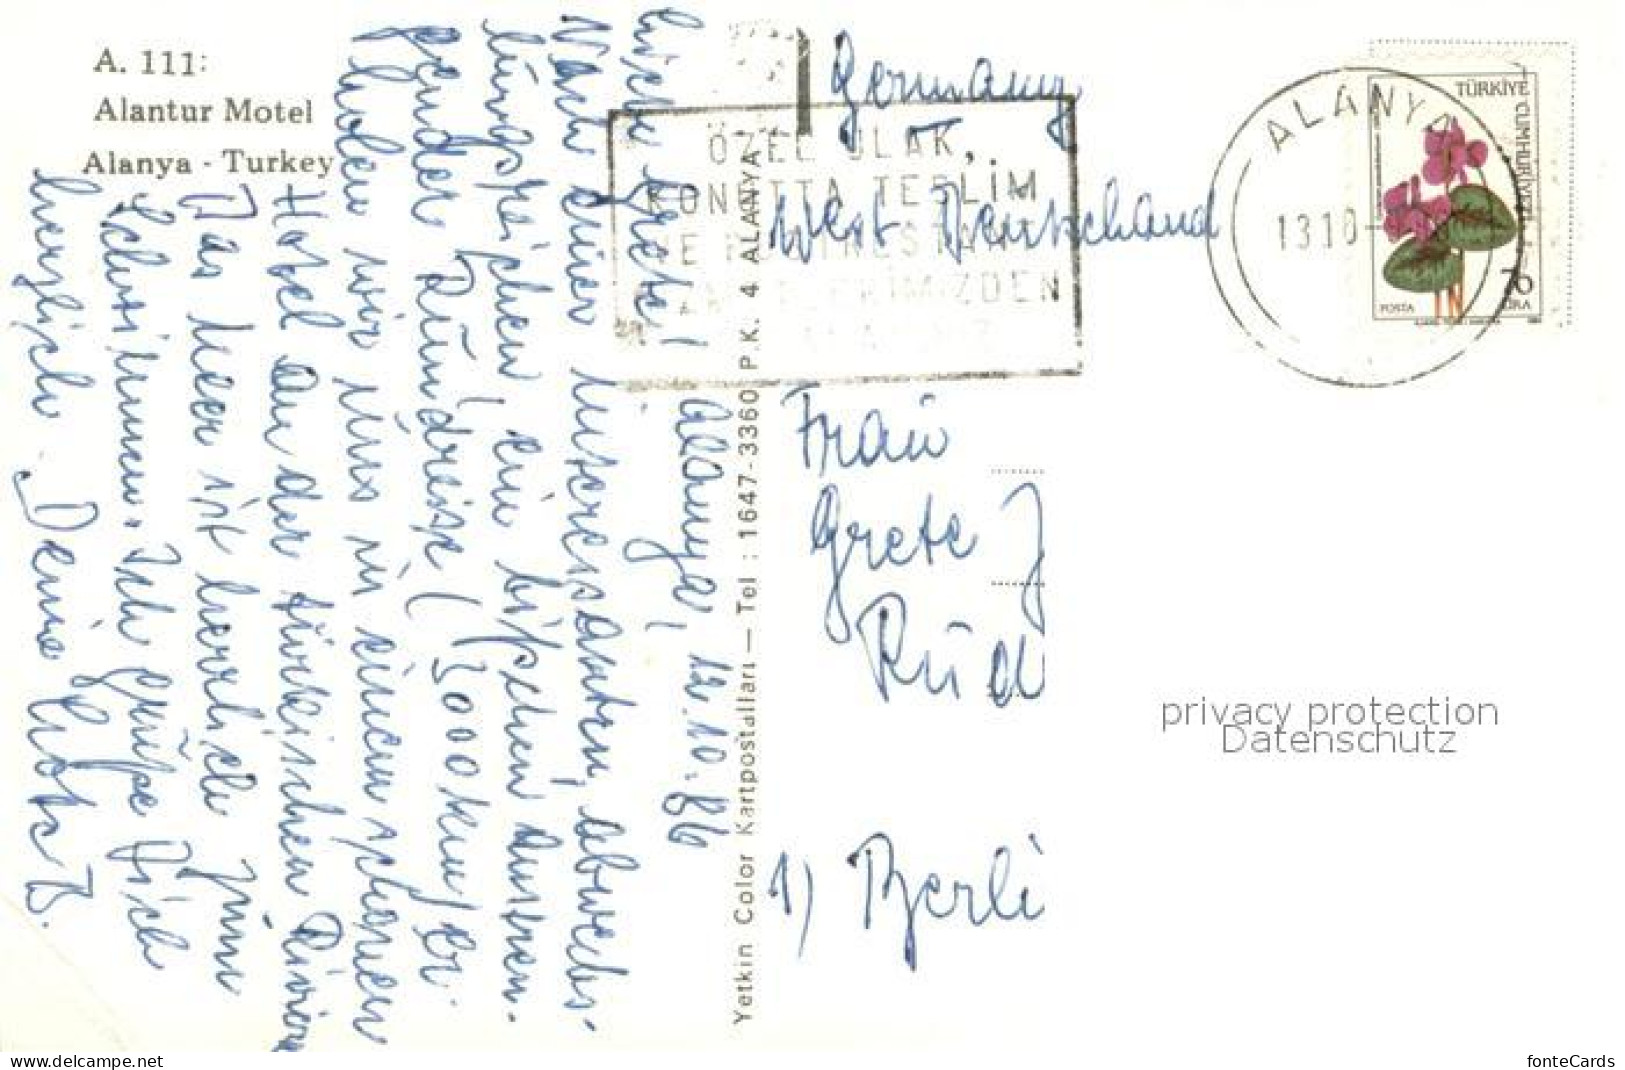 A. 111:
Alantur Motel
Alanya - Turkey
Liebe Grete!
Alanya, 12.10.86
Nach einer interessanten, abwechs-
lungsreichen ein bißchen anstren-
gender Rundreise (3000 km) er-
holen wir uns in einem schönen
Hotel an der türkischen Riviera
Das Meer ist herrlich zum
Schwimmen. Ich grüße Dich
herzlich. Deine Lotte B.
Yetkin Color Kartpostalları — Tel : 1647-3360 P.K. 4 ALANYA
ÖZEL ULAK,
KONUTTA TESLİM
Germany
West Deutschland
ALANYA
1310
TÜRKİYE CUMHURİYETİ
POSTA
70
LİRA
Frau
Grete J
Rud
1) Berli
privacy protection
Datenschutz
www.delcampe.net
fonteCards